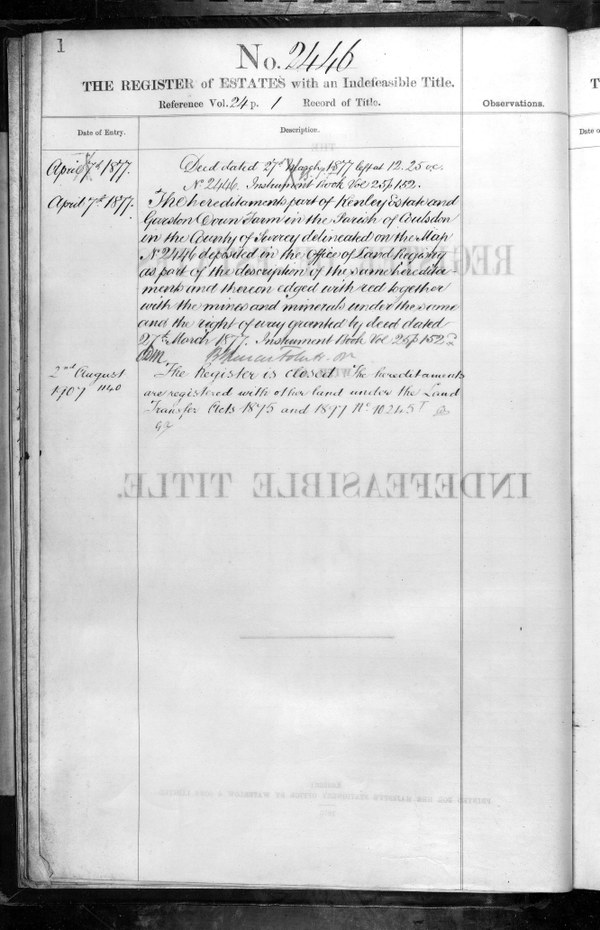 1
No. 2446
THE REGISTER of ESTATES with an Indefeasible Title.
Reference Vol. 24 p. 1 Record of Title.
Observations.
Date of Entry.
Description.
April 7th 1877.
Deed dated 27th March 1877 left at 12.25
No 2446. Instrument Book Vol 25 p 152.
April 7th 1877.
The hereditaments part of Kenley Estate and
Garston Down Farm in the Parish of Coulsdon
in the County of Surrey delineated on the Map
No 2446 deposited in the Office of Land Registry
as part of the description of the same heredita-
ments and thereon edged with red together
with the mines and minerals under the same
and the right of way granted by deed dated
27th March 1877. Instrument Book Vol 25 p 152
2nd August
1907 1140
The Register is closed. The hereditaments
are registered with other land under the Land
Transfer Acts 1875 and 1897 No 10245
REG
INDEFEASIBLE TITLE.